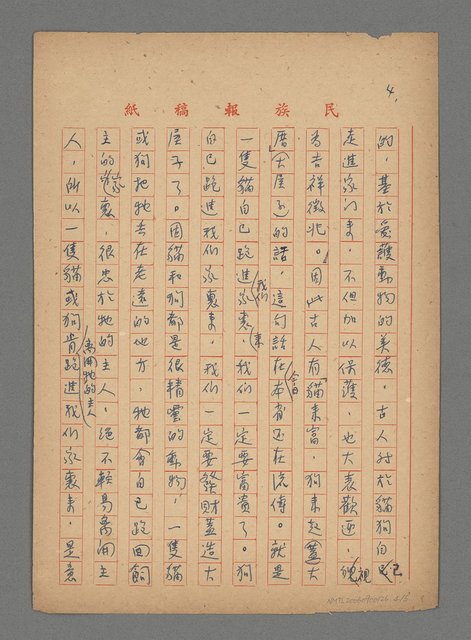 4.
民族報稿紙
的,基於愛護動物的美德。古人對於貓狗自己
走進家門來,不但加以保護,也大表歡迎,視
為吉祥徵兆。因此古人有「貓來富,狗來起蓋大
厝(大屋)」的話,這句話在今日本省還在流傳。就是
一隻貓自己跑進我們家裏來,我們一定要富貴了。狗
自己跑進我們家裏來,我們一定要發財蓋造大
屋子了。因貓和狗都是很精靈的動物,一隻貓
或狗把牠丟在老遠的地方,牠都會自己跑回飼
主的家裏,很忠於牠的主人,絕不輕易離開主
人,所以一隻貓或狗肯離開牠的主人跑進我們家裏來,是意